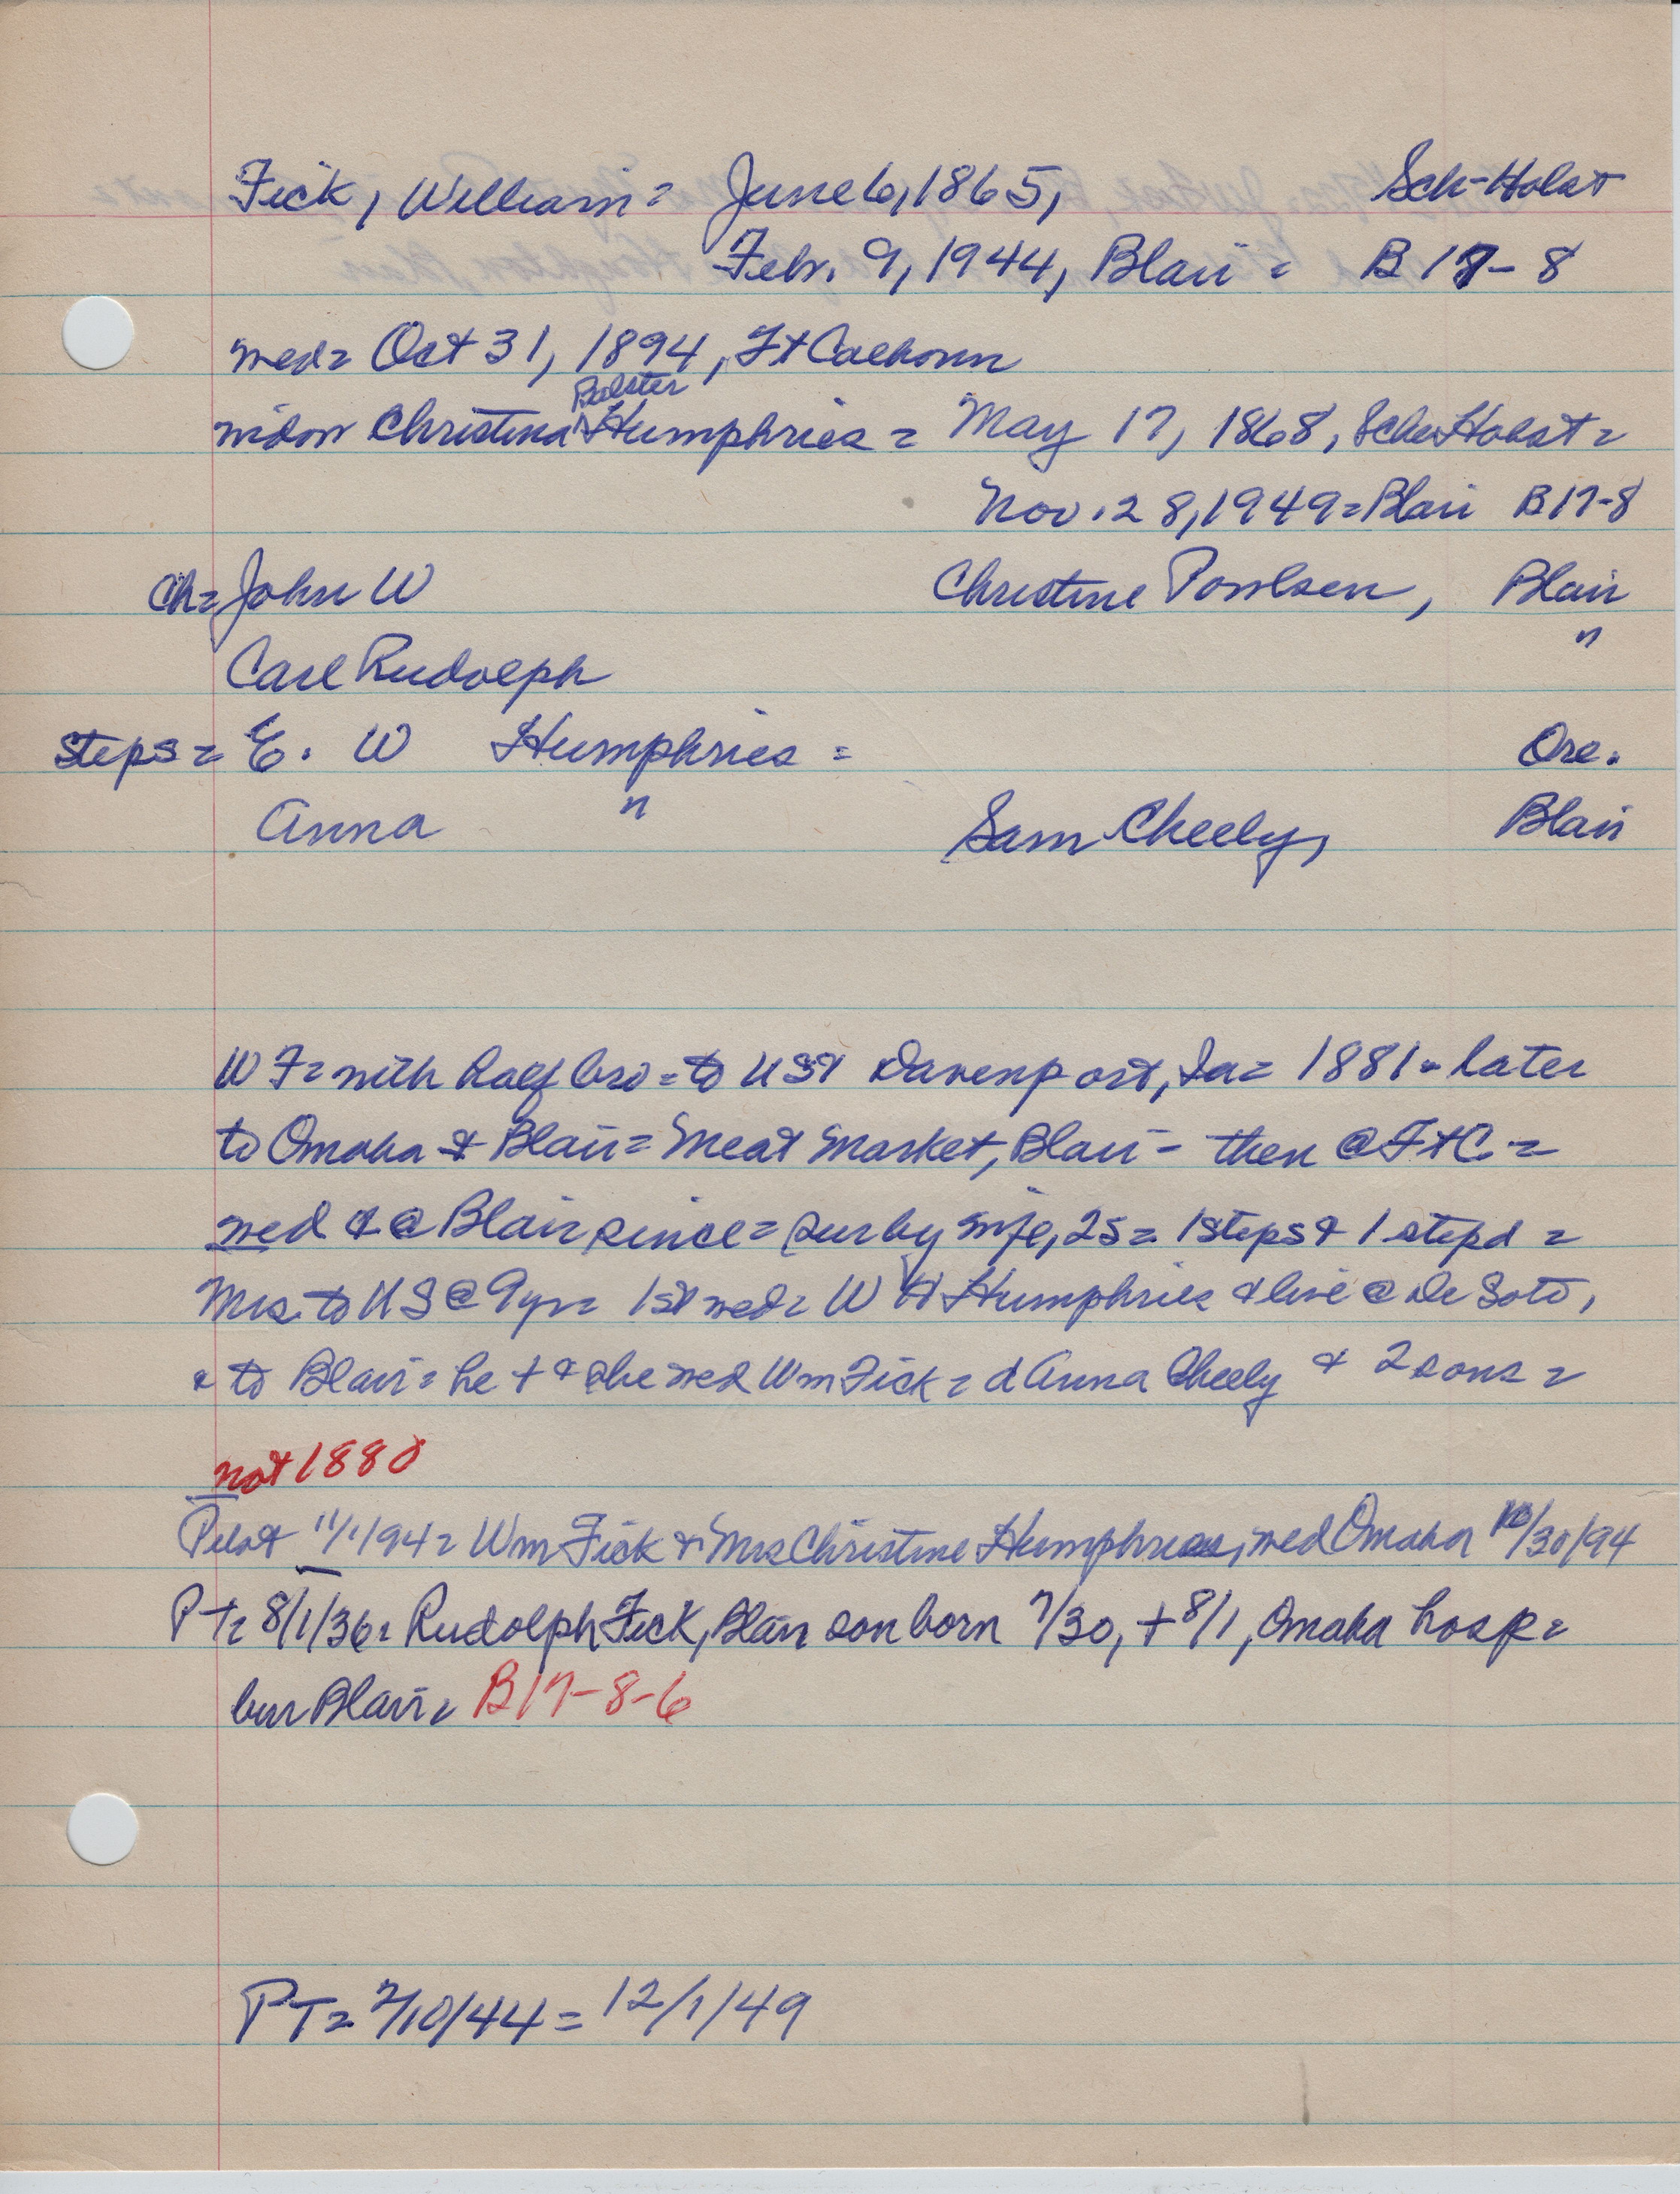 Fick, William = June 6, 1865, Sch-Holst
Feb. 9, 1944, Blair = B 17-8
wed = Oct 31, 1894, Ft Calhoun
Bolster
widow Christina ^ Humphries = May 17, 1868, Sch-Holst =
Nov. 28, 1949 = Blair B 17-8
ch = John W Christine Poulsen, Blair
Carl Rudolph "
steps = E. W Humphries = Ore.
Anna " Sam Cheely, Blair
W F = with half bro = to US & Davenport, Ia = 1881 = later
to Omaha & Blair = Meat Market, Blair - then @ Ft C. =
wed & @ Blair since = sur by wife, 2s = 1 steps & 1 stepd =
Mrs. to US @ 9 yr = 1st wed = W H Humphries & live @ De Soto,
& to Blair = he + & she wed Wm Fick = d Anna Cheely & 2 sons =
not 1880
Pilot 11/1/94 = Wm Fick & Mrs Christine Humphries, wed Omaha 10/30/94
PT = 8/1/36 = Rudolph Fick, Blair son born 7/30, + 8/1, Omaha hosp =
bur Blair = B17-8-6
PT = 2/10/44 = 12/1/49